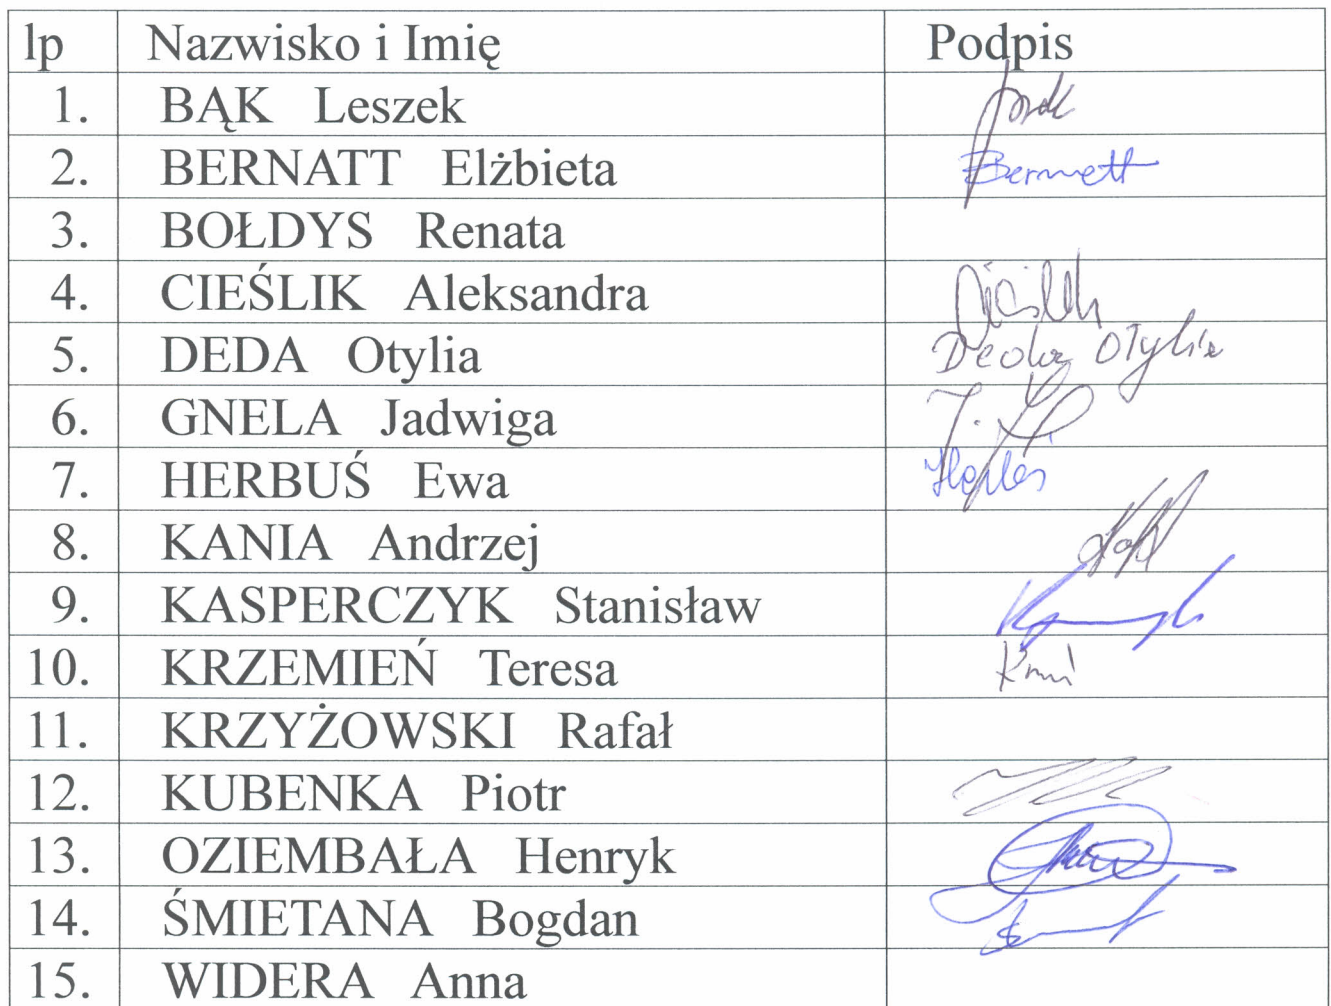 lp Nazwisko i Imię Podpis
1. BĄK Leszek
2. BERNATT Elżbieta Bernatt
3. BOŁDYS Renata
4. CIEŚLIK Aleksandra
5. DEDA Otylia Deda Otylia
6. GNELA Jadwiga
7. HERBUŚ Ewa
8. KANIA Andrzej
9. KASPERCZYK Stanisław
10. KRZEMIEŃ Teresa
11. KRZYŻOWSKI Rafał
12. KUBENKA Piotr
13. OZIEMBAŁA Henryk
14. ŚMIETANA Bogdan
15. WIDERA Anna